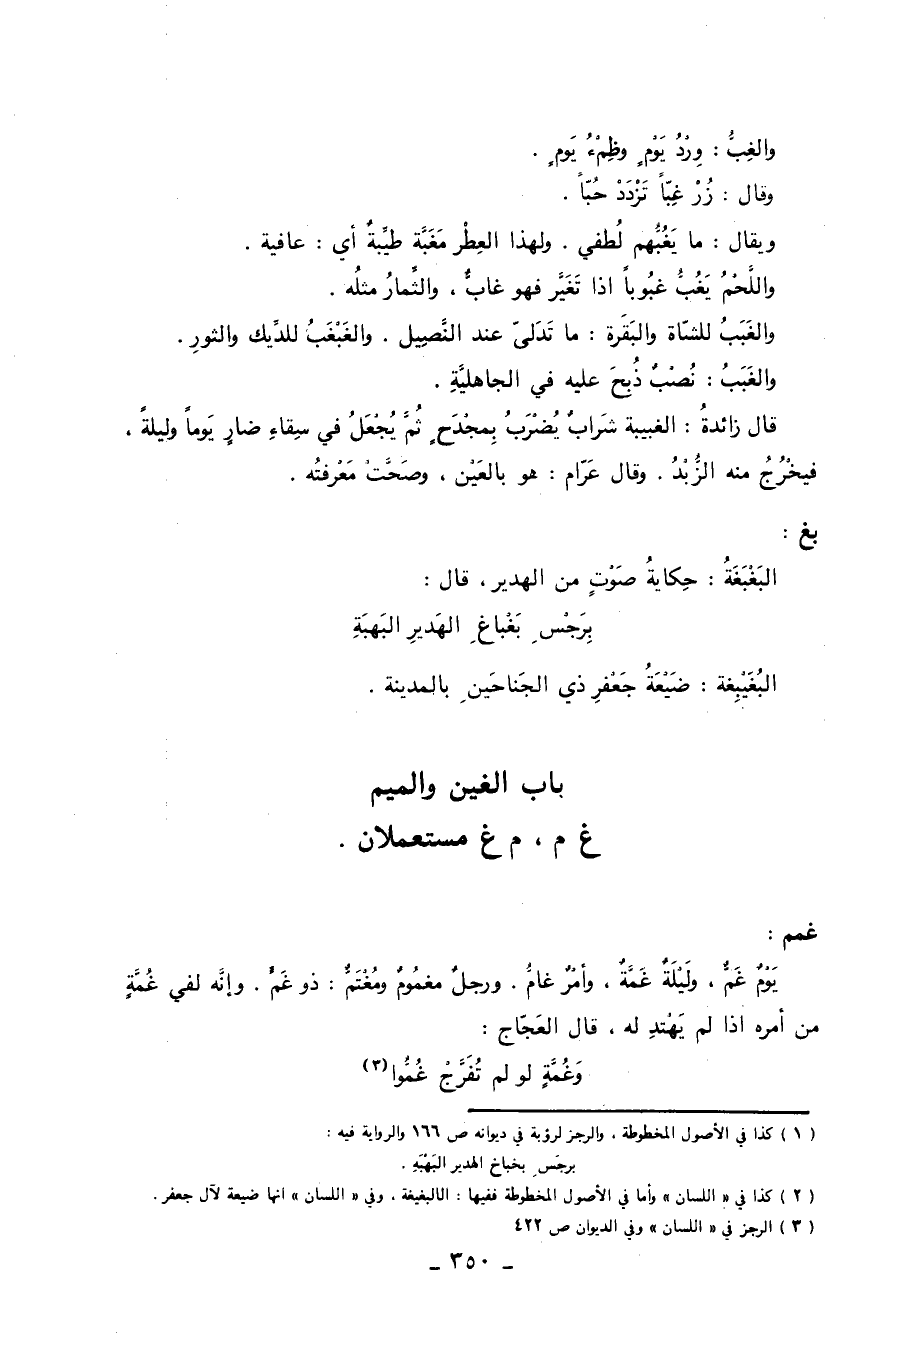 والغِبُّ : وِرْدُ يَوْمٍ وظِمْءُ يَومٍ .
وقال : زُرْ غِبّاً تَزْدَدْ حُبّاً .
ويقال : ما يَغُبُّهم لُطفي . ولهذا العِطْر مَغَبَّة طيِّبةٌ أي : عافية .
واللَّحْمُ يَغُبُّ غبُوباً اذا تَغَيَّر فهو غابٌّ ، والثِّمارُ مثلُه .
والغَبَبُ للشّاة والبَقَرة : ما تَدَلىّ عند النَّصِيل . والغَبْغَبُ للدِّيك والثورِ .
والغَبَبُ : نُصْبٌ ذُبِحَ عليه في الجاهليَّةِ .
قال زائدةُ : الغبيبة شرَابٌ يُضْرَبُ بِمجْدَحٍ ثُمَّ يُجْعَلُ في سِقاءِ ضارٍ يَوماً وليلةً ،
فيخْرُجُ منه الزُّبْدُ . وقال عَرّام : هو بالعَيْن ، وصَحَّتْ مَعْرفتُه .
بغ :
البَغْبَغَةُ : حِكايةُ صَوْتٍ من الهدير ، قال :
بِرَجْسِ بَغْباغِ الهَديرِ البَهبَةِ
البُغَيْبِغة : ضَيْعَةُ جَعْفرِ ذي الجَناحَينِ بالمدينة .
باب الغين والميم
غ م ، م غ مستعملان .
غمم :
يَوْمٌ غَمٌّ ، ولَيْلَةٌ غَمَّةٌ ، وأمْرٌ غامُّ . ورجلٌ مغمُومٌ ومُغْتَمٌّ : ذو غَمٍّ . وإنَّه لفي غُمَّةٍ
من أمره اذا لم يَهْتدِ له ، قال العَجّاج :
وَغُمَّةٍ لو لم تُفَرَّجْ غُمُّوا(٣)
( ١ ) كذا في الأصول المخطوطة ، والرجز لرؤبة في ديوانه ص ١٦٦ والرواية فيه :
برجَسِ بخباخ الهدير البَهْبَهِ .
( ٢ ) كذا في « اللسان » وأما في الأصول المخطوطة ففيها : الالبغيغة ، وفي « اللسان » انها ضيعة لآل جعفر .
( ٣ ) الرجز في « اللسان » وفي الديوان ص ٤٢٢
ـ ٣٥٠ ـ